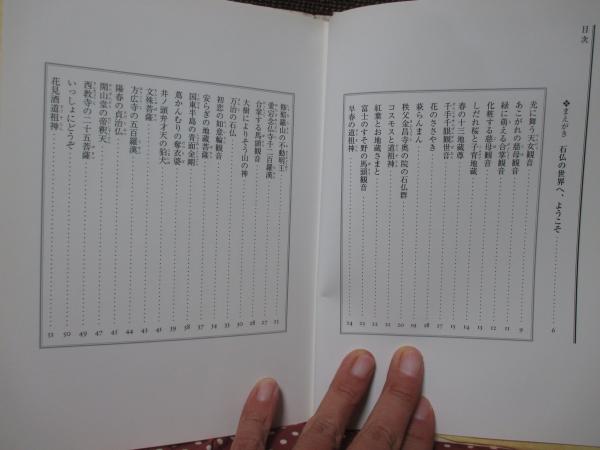 目次
❖まえがき 石仏の世界へ、ようこそ 6
光と舞う天女観音 9
あこがれの慈母観音 11
緑に萌える合掌観音 12
化粧する慈母観音 13
しだれ桜と子育地蔵 14
春の十三地蔵尊 15
千手千眼観世音 17
花のささやき 18
萩らんまん 19
コスモスと道祖神 20
秩父金昌寺奥の院の石仏群 21
紅葉とお地蔵さまと 22
富士のすそ野の馬頭観音 23
早春の道祖神 24
羅山の不動明王 25
愛宕念仏寺千二百羅漢 27
合掌する馬頭観音 28
大樹によりそう山の神 30
万治の石仏 31
初恋の如意輪観音 34
安らぎの地蔵菩薩 37
国東半島の青面金剛 38
葛かんむりの奪衣婆 39
井ノ頭弁才天の狛犬 41
文殊菩薩 43
方広寺の五百羅漢 44
陽春の貞治仏 45
開山堂の帝釈天 47
西教寺の二十五菩薩 49
いっしょにどうぞ 50
花見酒道祖神 51